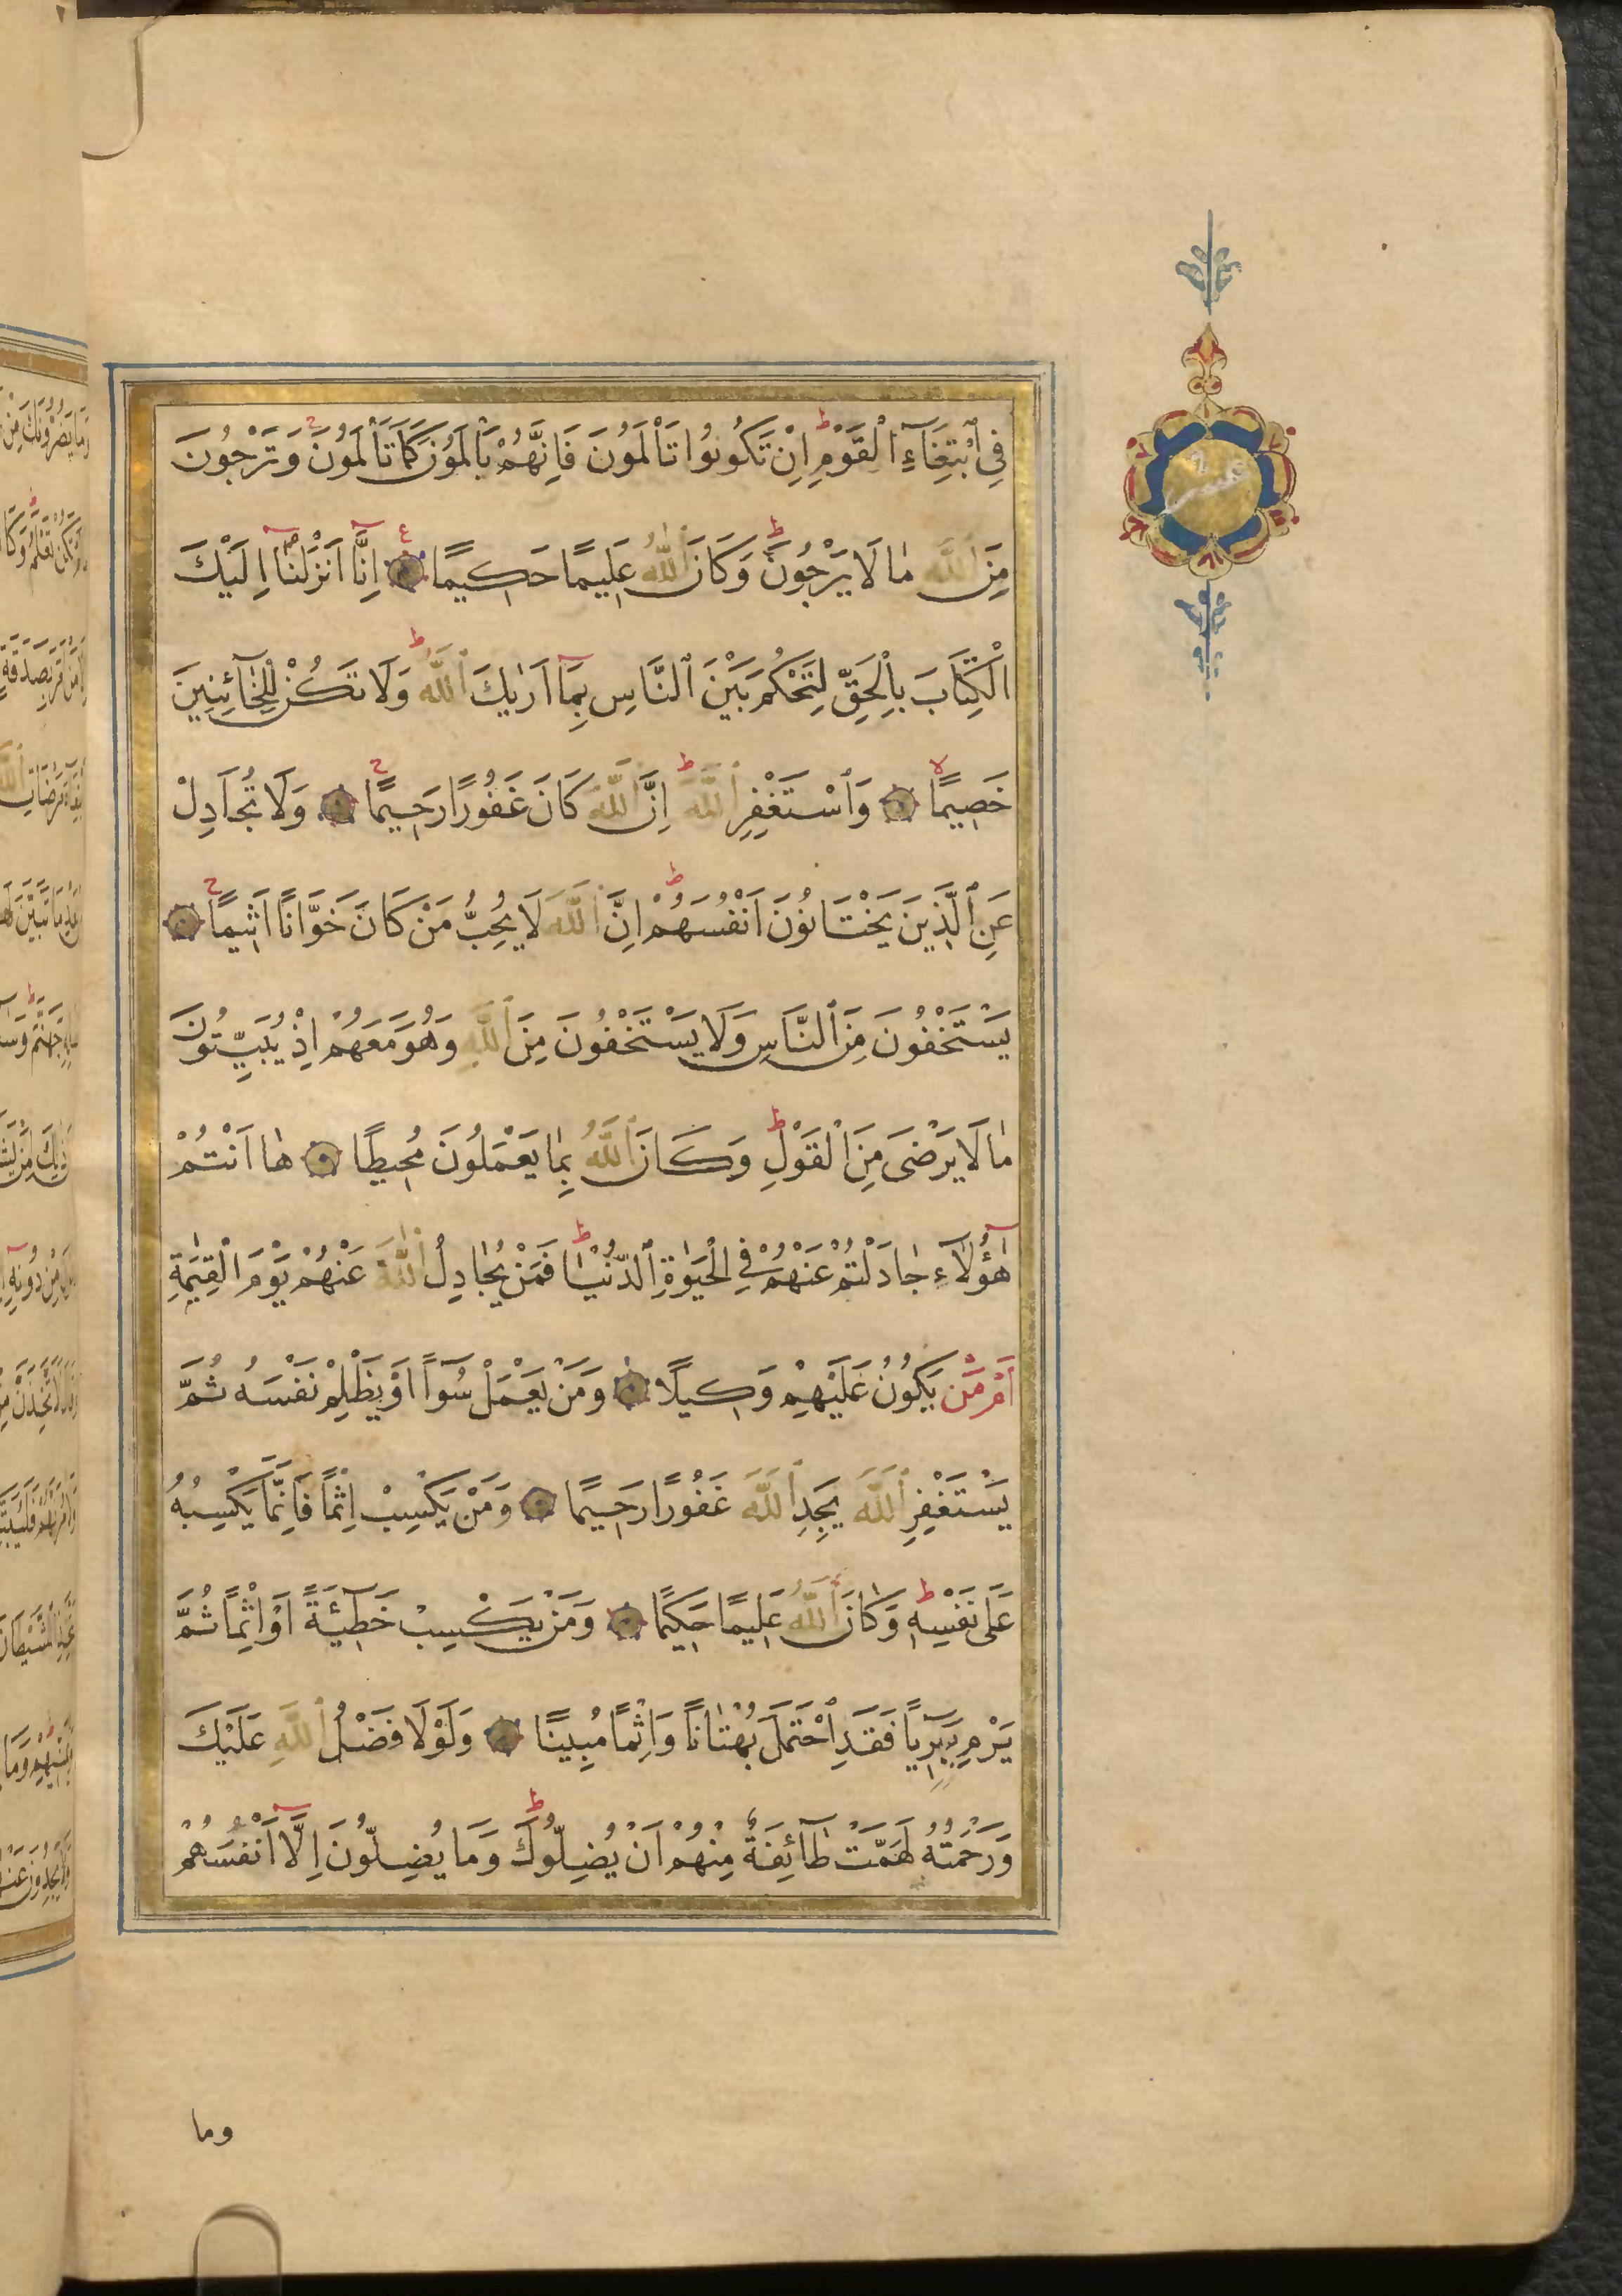 فِي ٱبْتِغَآءِ ٱلْقَوْمِ ط اِنْ تَكُونُوا تَأْلَمُونَ فَاِنَّهُمْ يَأْلَمُونَ كَمَا تَأْلَمُونَ ج وَتَرْجُونَ
مِنَ ٱللّٰهِ مَا لَا يَرْجُونَ ط وَكَانَ ٱللّٰهُ عَلِيمًا حَكِيمًا ع اِنَّآ اَنْزَلْنَآ اِلَيْكَ
الْكِتَابَ بِالْحَقِّ لِتَحْكُمَ بَيْنَ ٱلنَّاسِ بِمَآ اَرٰيكَ ٱللّٰهُ ط وَلَا تَكُنْ لِلْخَآئِنِينَ
خَصِيمًا لا وَٱسْتَغْفِرِ ٱللّٰهَ ط اِنَّ ٱللّٰهَ كَانَ غَفُورًا رَحِيمًا ج وَلَا تُجَادِلْ
عَنِ ٱلَّذِينَ يَخْتَانُونَ اَنْفُسَهُمْ ط اِنَّ ٱللّٰهَ لَا يُحِبُّ مَنْ كَانَ خَوَّانًا اَثِيمًا ج
يَسْتَخْفُونَ مِنَ ٱلنَّاسِ وَلَا يَسْتَخْفُونَ مِنَ ٱللّٰهِ وَهُوَ مَعَهُمْ اِذْ يُبَيِّتُونَ
مَا لَا يَرْضٰى مِنَ ٱلْقَوْلِ ط وَكَانَ ٱللّٰهُ بِمَا يَعْمَلُونَ مُحِيطًا هٰا اَنْتُمْ
هٰٓؤُلَآءِ جَادَلْتُمْ عَنْهُمْ فِي الْحَيٰوةِ ٱلدُّنْيَا ط فَمَنْ يُجَادِلُ ٱللّٰهَ عَنْهُمْ يَوْمَ الْقِيٰمَةِ
اَمْ مَّن يَكُونُ عَلَيْهِمْ وَكِيلًا وَمَنْ يَعْمَلْ سُوٓءًا اَوْ يَظْلِمْ نَفْسَهُ ثُمَّ
يَسْتَغْفِرِ ٱللّٰهَ يَجِدِ ٱللّٰهَ غَفُورًا رَحِيمًا وَمَنْ يَكْسِبْ اِثْمًا فَاِنَّمَا يَكْسِبُهُ
عَلٰى نَفْسِهِ ط وَكَانَ ٱللّٰهُ عَلِيمًا حَكِيمًا وَمَنْ يَكْسِبْ خَطِيٓئَةً اَوْ اِثْمًا ثُمَّ
يَرْمِ بِهِ بَرِيٓئًا فَقَدِ ٱحْتَمَلَ بُهْتَانًا وَاِثْمًا مُبِينًا وَلَوْلَا فَضْلُ ٱللّٰهِ عَلَيْكَ
وَرَحْمَتُهُ لَهَمَّتْ طَآئِفَةٌ مِنْهُمْ اَنْ يُضِلُّوكَ ط وَمَا يُضِلُّونَ اِلَّآ اَنْفُسَهُمْ
وما
عشر